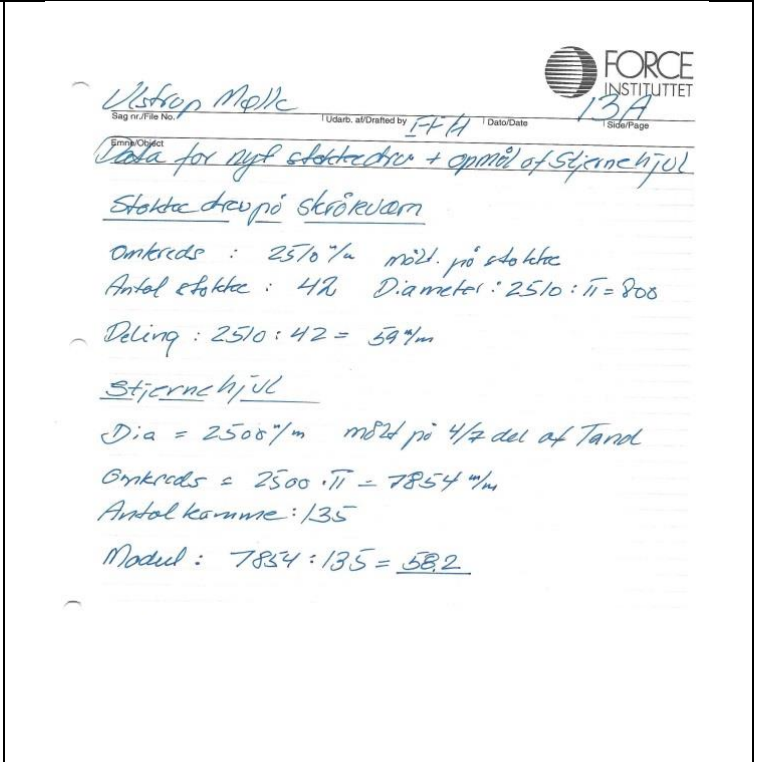 FORCE
INSTITUTTET
Ulstrup Mølle
13A
Sag nr./File No. Udarb. af/Drafted by FFH Dato/Date Side/Page
Emne/Object
Data for nyt stokkedrev + opmål af Stjernehjul
Stokke drev på skråkværn
Omkreds : 2510 m/m målt. på stokke
Antal stokke : 42 Diameter : 2510 : π = 800
Deling : 2510 : 42 = 59 m/m
Stjernehjul
Dia = 2500 m/m målt på 4/7 del af Tand
Omkreds = 2500 · π = 7854 m/m
Antal kamme : 135
Modul : 7854 : 135 = 58,2